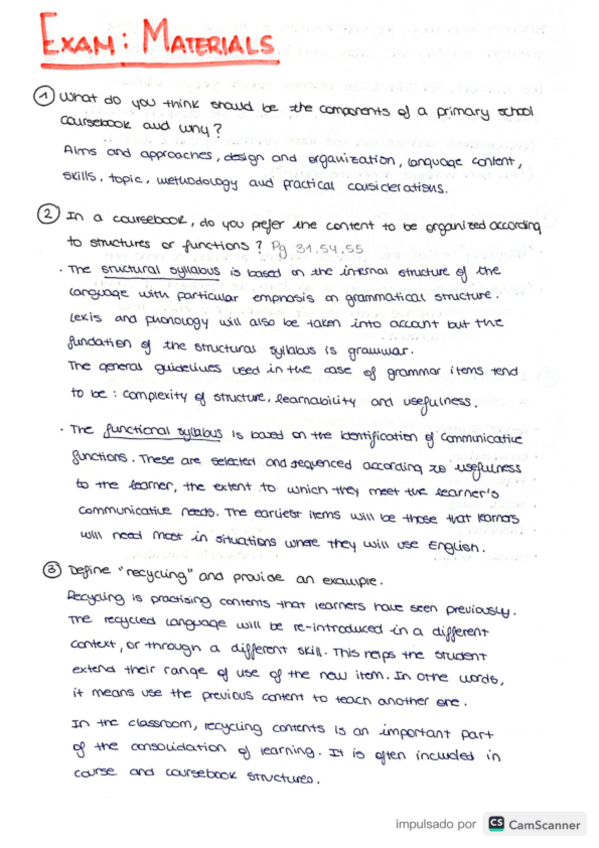 EXAM: MATERIALS
① What do you think should be the components of a primary school
coursebook and why?
Aims and approaches, design and organization, language content,
skills, topic, methodology and practical considerations.
② In a coursebook, do you prefer the content to be organized according
to structures or functions? Pg 31.54.55
· The structural syllabus is based on the internal structure of the
language with particular emphasis on grammatical structure.
Lexis and phonology will also be taken into account but the
fundation of the structural syllabus is grammar.
The general guidelines used in the case of grammar items tend
to be: complexity of structure, learnability and usefulness.
· The functional syllabus is based on the identification of communicative
functions. These are selected and sequenced according to usefulness
to the learner, the extent to which they meet the learner's
communicative needs. The earliest items will be those that learners
will need most in situations where they will use English.
③ Define "recycling" and provide an example.
Recycling is practising contents that learners have seen previously.
The recycled language will be re-introduced in a different
context, or through a different skill. This helps the student
extend their range of use of the new item. In othe words,
it means use the previous content to teach another one.
In the classroom, recycling contents is an important part
of the consolidation of learning. It is often included in
course and coursebook structures.
impulsado por CS CamScanner